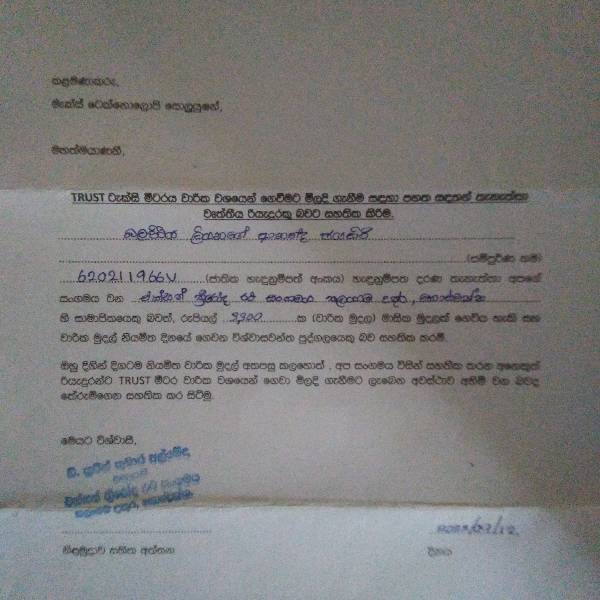 කළමණාකරු,
මැක්ස් ටෙක්නොලොජි සොලුෂන්,
මහත්මයාණනි,
TRUST ටැක්සි මීටරය වාරික වශයෙන් ගෙවීමට මිලදී ගැනීම සඳහා පහත සඳහන් තැනැත්තා
වෘත්තීය රියැදුරකු බවට සහතික කිරීම.
ලියනගේ ආනන්ද ජයසිරි
(සම්පූර්ණ නම)
620211966V (ජාතික හැඳුනුම්පත් අංකය) හැඳුනුම්පත දරණ තැනැත්තා අපගේ
සංගමය වන එක්සත් ත්‍රීරෝද රථ සංගමය
හි සාමාජිකයෙකු බවත්, රුපියල් 3300 ක (වාරික මුදල) මාසික මුදලක් ගෙවිය හැකි සහ
වාරික මුදල් නියමිත දිනයේ ගෙවන විශ්වාසවන්ත පුද්ගලයෙකු බව සහතික කරමි.
ඔහු විසින් දිගටම නියමිත වාරික මුදල් අතපසු කලහොත් , අප සංගමය විසින් සහතික කරන අනෙකුත්
රියැදුරන්ට TRUST මීටර වාරික වශයෙන් ගෙවා මිලදී ගැනීමට ලැබෙන අවස්ථාව අහිමි වන බවද
තේරුම්ගෙන සහතික කර සිටිමු.
මෙයට විශ්වාසී,
එක්සත් ත්‍රීරෝද රථ සංගමය
නිළමුද්‍රාව සහිත අත්සන
දිනය